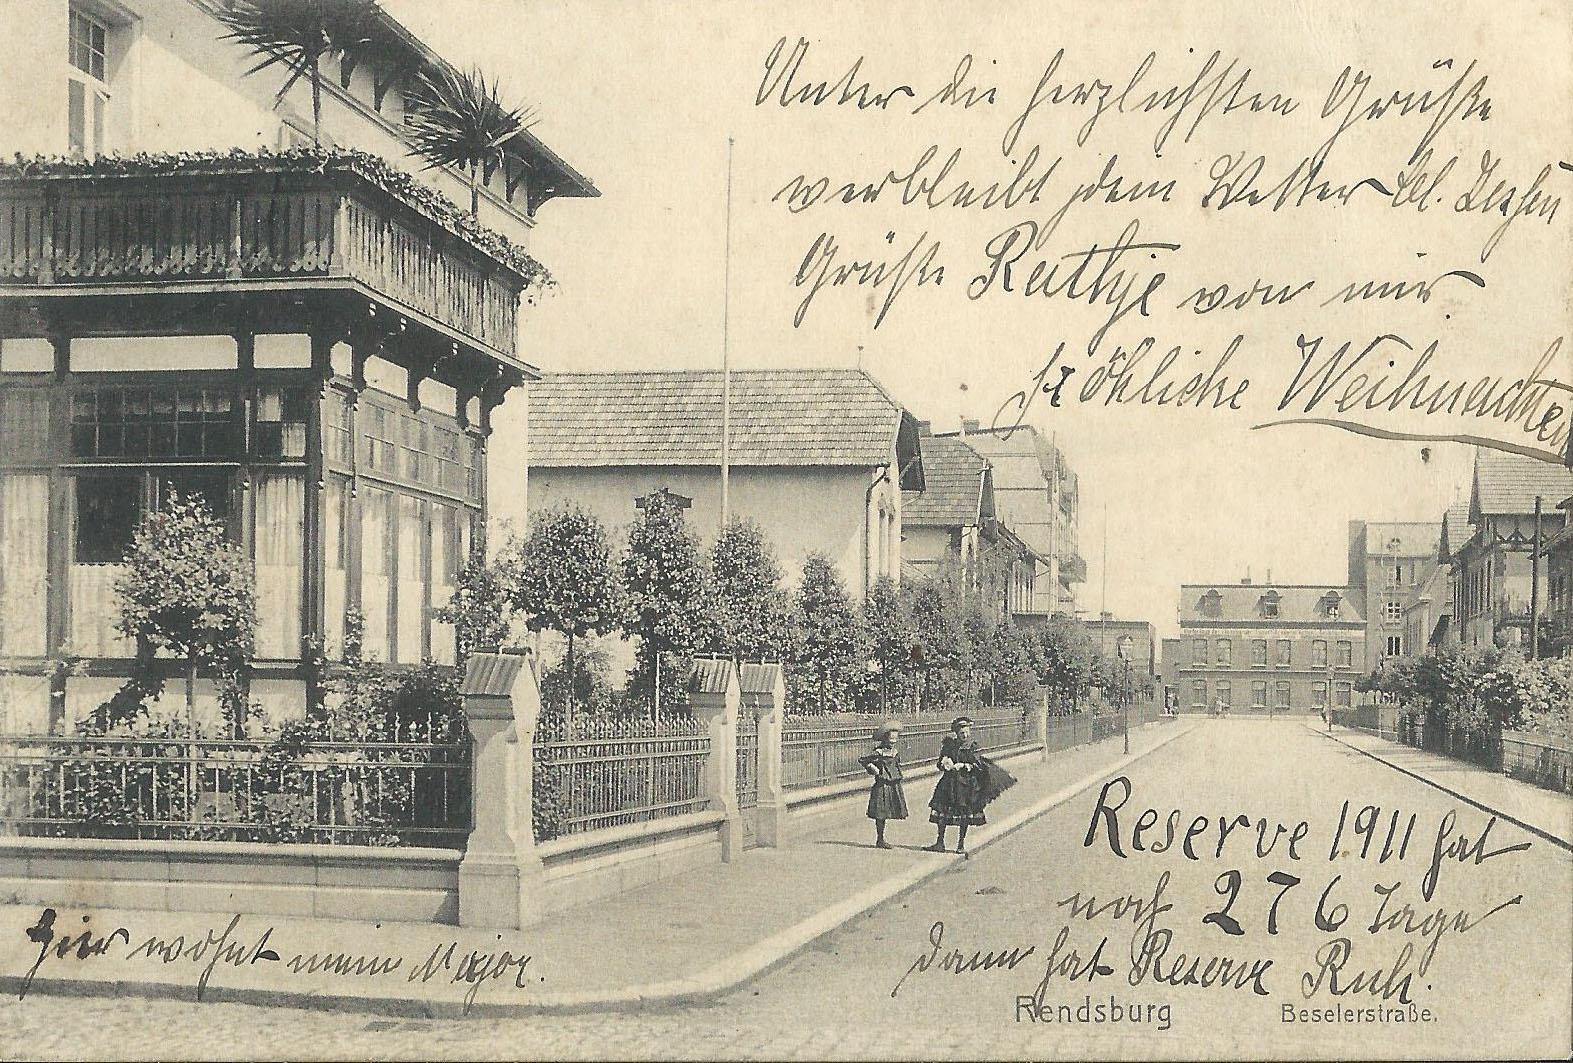 Unter die herzlichsten Grüße
verbleibt dein Vetter
Grüße Rathje von mir
fröhliche Weihnachten
Reserve 1911 hat
noch 276 Tage
dann hat Reserve Ruh.
hier wohnt mein Major.
Rendsburg Beselerstraße.